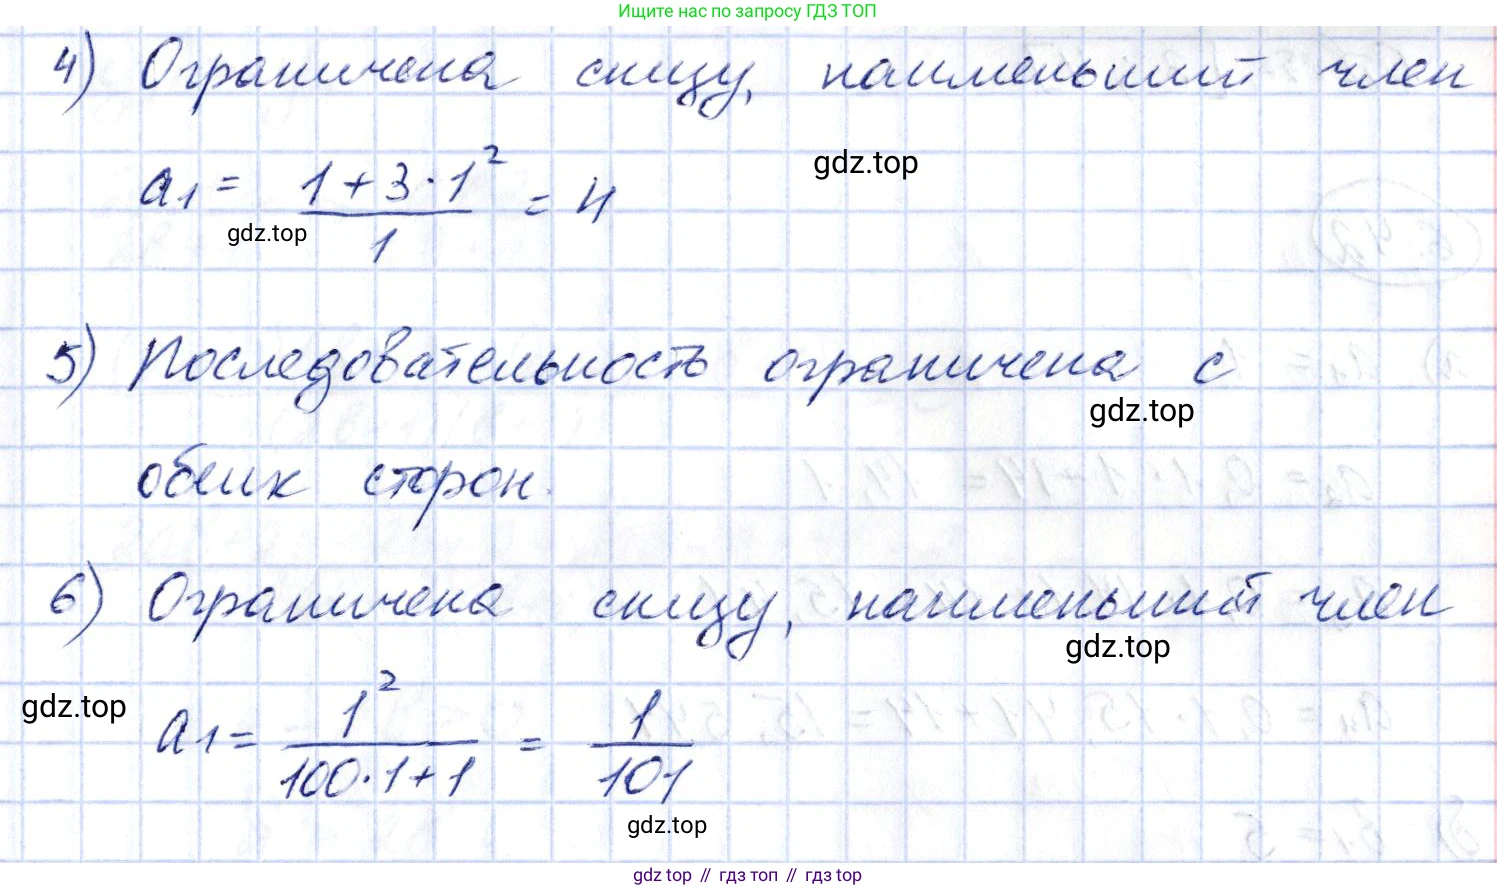 Ищите нас по запросу ГДЗ ТОП
4) Ограничена снизу, наименьший член
gdz.top
a₁ = (1 + 3 · 1²)/1 = 4
gdz.top
5) Последовательность ограничена с
gdz.top
обеих сторон.
6) Ограничена снизу, наименьший член
gdz.top
gdz.top
a₁ = 1²/(100 · 1 + 1) = 1/101
gdz.top
gdz top // гдз топ // гдз top